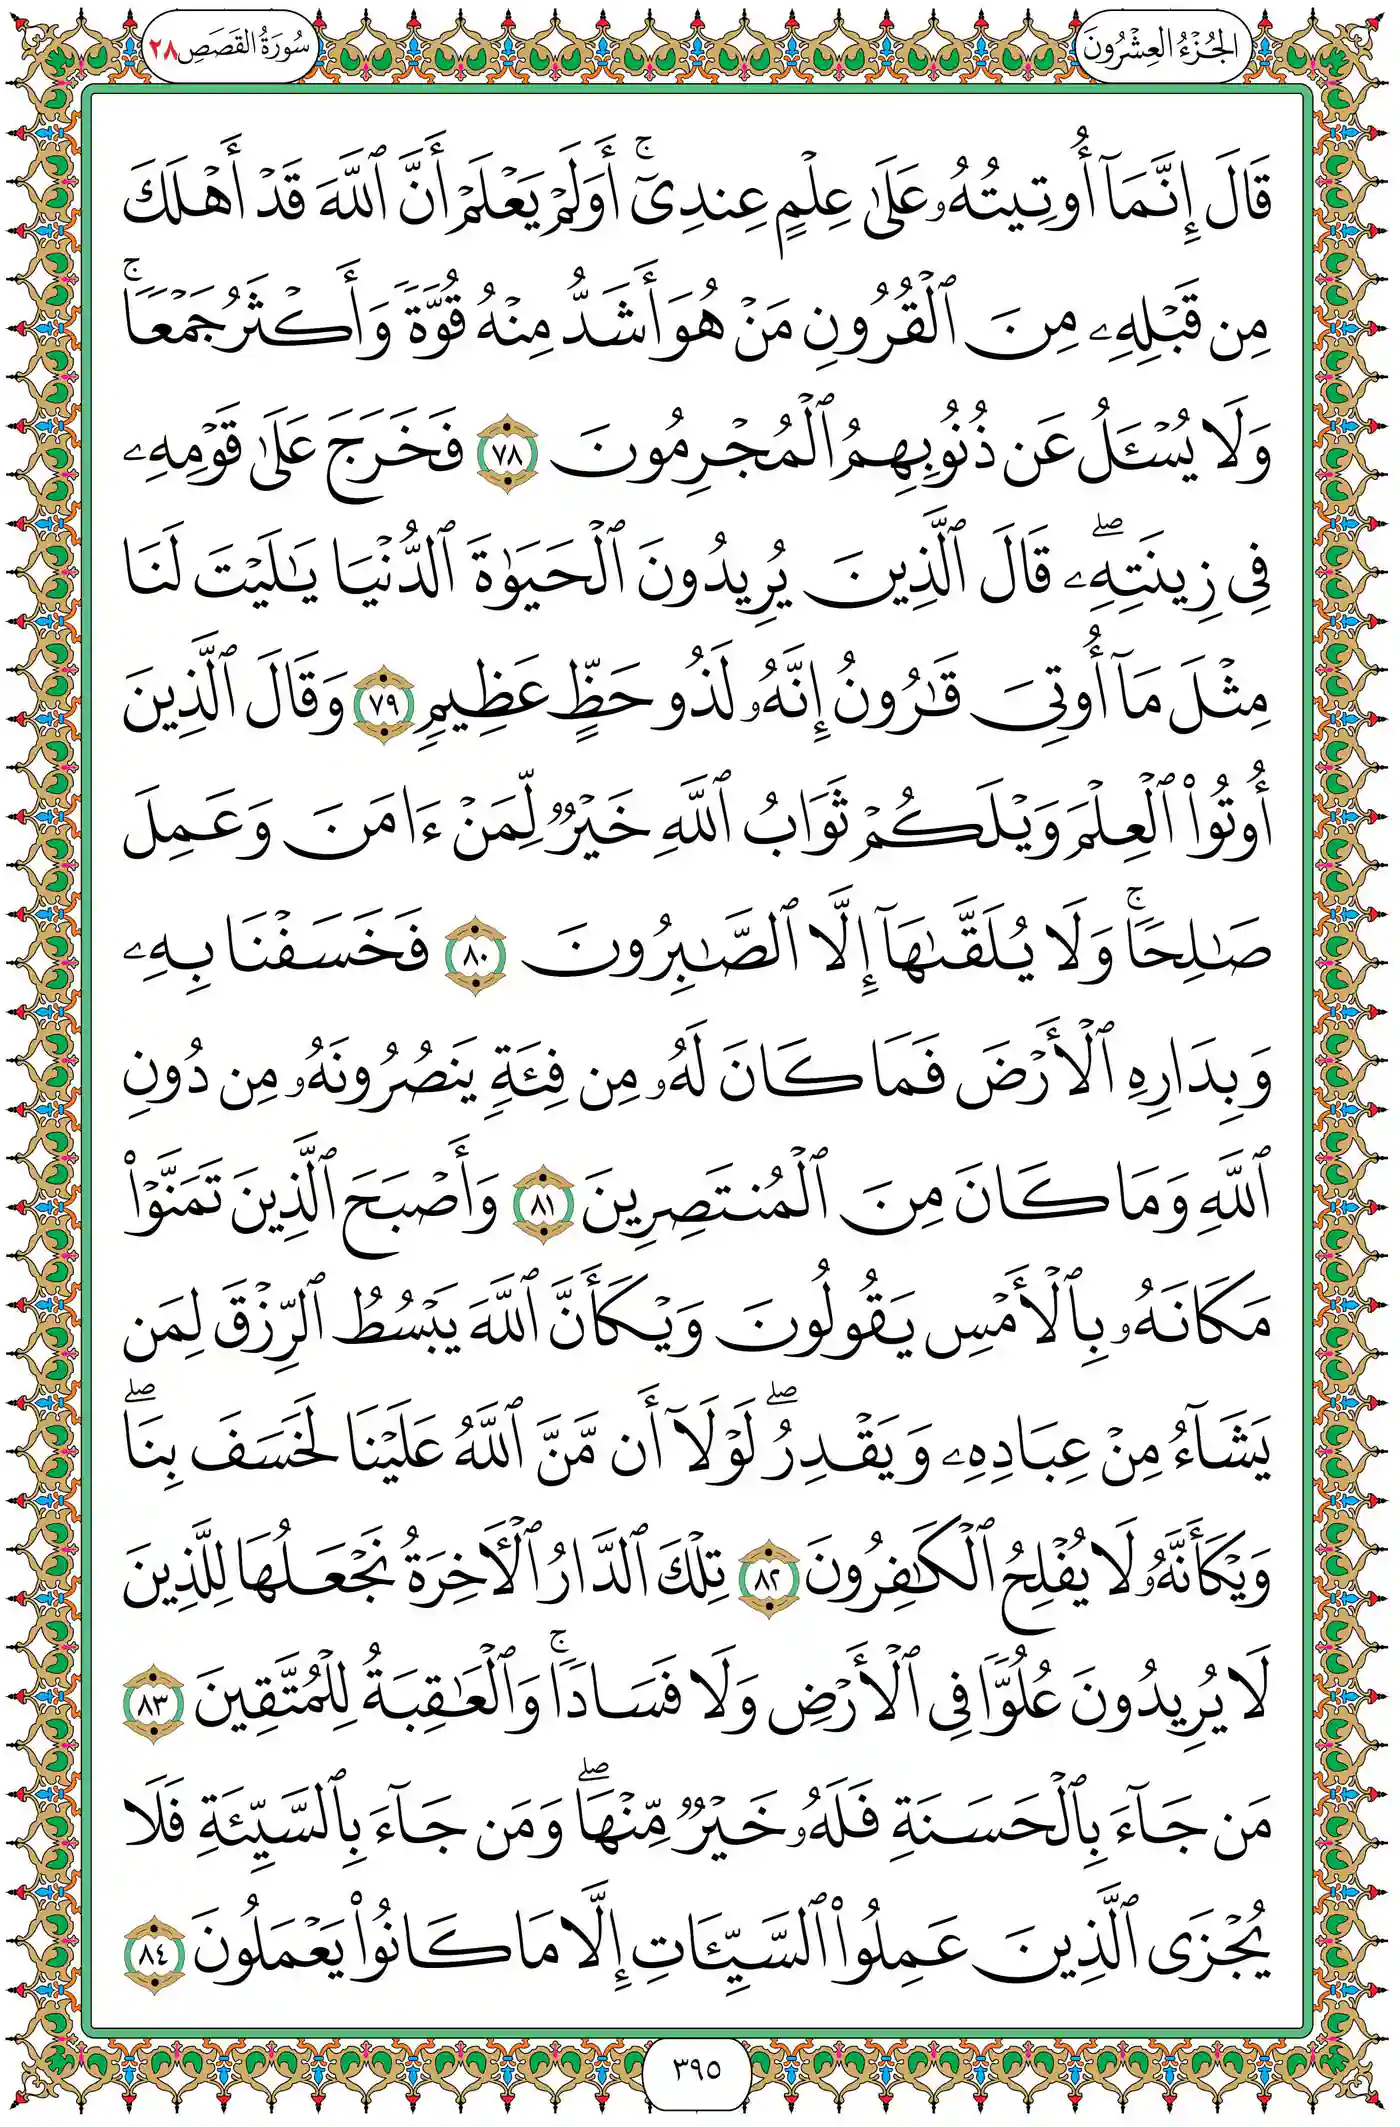 الجُزْءُ العِشْرُونَ
سُورَةُ القَصَصِ ٢٨
قَالَ إِنَّمَآ أُوتِيتُهُۥ عَلَىٰ عِلْمٍ عِندِيٓۚ أَوَلَمْ يَعْلَمْ أَنَّ ٱللَّهَ قَدْ أَهْلَكَ
مِن قَبْلِهِۦ مِنَ ٱلْقُرُونِ مَنْ هُوَ أَشَدُّ مِنْهُ قُوَّةً وَأَكْثَرُ جَمْعًاۚ
وَلَا يُسْـَٔلُ عَن ذُنُوبِهِمُ ٱلْمُجْرِمُونَ ٧٨ فَخَرَجَ عَلَىٰ قَوْمِهِۦ
فِى زِينَتِهِۦۖ قَالَ ٱلَّذِينَ يُرِيدُونَ ٱلْحَيَوٰةَ ٱلدُّنْيَا يَٰلَيْتَ لَنَا
مِثْلَ مَآ أُوتِىَ قَٰرُونُ إِنَّهُۥ لَذُو حَظٍّ عَظِيمٍ ٧٩ وَقَالَ ٱلَّذِينَ
أُوتُوا۟ ٱلْعِلْمَ وَيْلَكُمْ ثَوَابُ ٱللَّهِ خَيْرٌ لِّمَنْ ءَامَنَ وَعَمِلَ
صَٰلِحًاۚ وَلَا يُلَقَّىٰهَآ إِلَّا ٱلصَّٰبِرُونَ ٨٠ فَخَسَفْنَا بِهِۦ
وَبِدَارِهِ ٱلْأَرْضَ فَمَا كَانَ لَهُۥ مِن فِئَةٍ يَنصُرُونَهُۥ مِن دُونِ
ٱللَّهِ وَمَا كَانَ مِنَ ٱلْمُنتَصِرِينَ ٨١ وَأَصْبَحَ ٱلَّذِينَ تَمَنَّوْا۟
مَكَانَهُۥ بِٱلْأَمْسِ يَقُولُونَ وَيْكَأَنَّ ٱللَّهَ يَبْسُطُ ٱلرِّزْقَ لِمَن
يَشَآءُ مِنْ عِبَادِهِۦ وَيَقْدِرُۖ لَوْلَآ أَن مَّنَّ ٱللَّهُ عَلَيْنَا لَخَسَفَ بِنَاۖ
وَيْكَأَنَّهُۥ لَا يُفْلِحُ ٱلْكَٰفِرُونَ ٨٢ تِلْكَ ٱلدَّارُ ٱلْأَخِرَةُ نَجْعَلُهَا لِلَّذِينَ
لَا يُرِيدُونَ عُلُوًّا فِى ٱلْأَرْضِ وَلَا فَسَادًاۚ وَٱلْعَٰقِبَةُ لِلْمُتَّقِينَ ٨٣
مَن جَآءَ بِٱلْحَسَنَةِ فَلَهُۥ خَيْرٌ مِّنْهَاۖ وَمَن جَآءَ بِٱلسَّيِّئَةِ فَلَا
يُجْزَى ٱلَّذِينَ عَمِلُوا۟ ٱلسَّيِّـَٔاتِ إِلَّا مَا كَانُوا۟ يَعْمَلُونَ ٨٤
٣٩٥